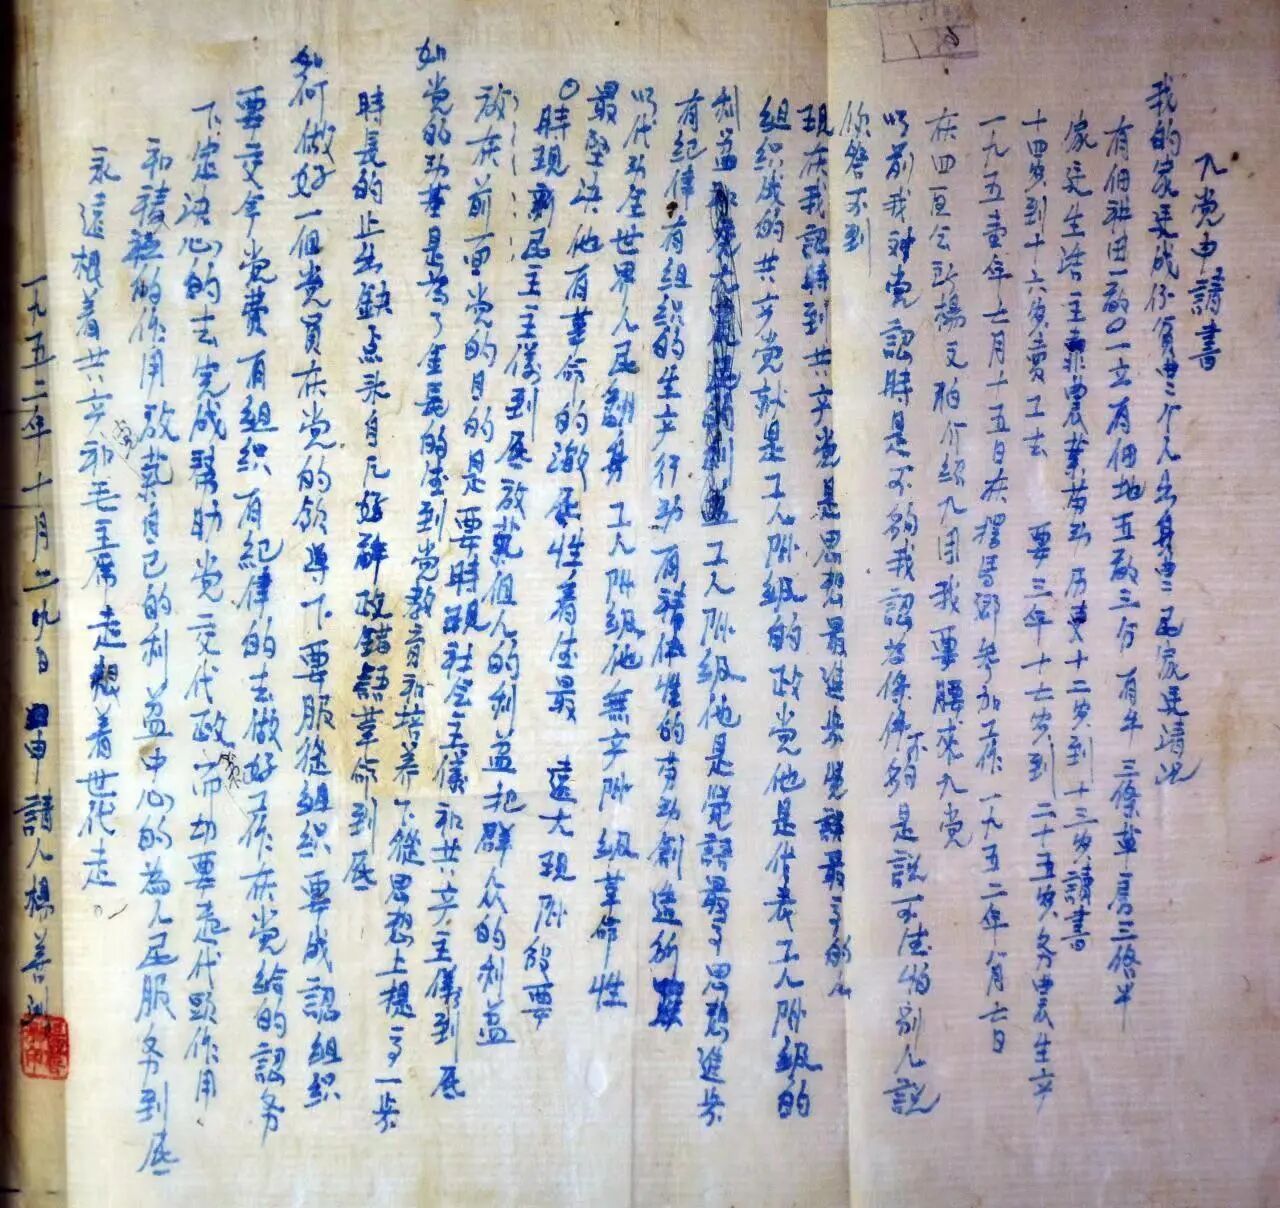 入党申請書
我的家廷成份貧農个人出身農民家廷情况
有佃耕田一畝〇一立有佃地五畝三分 有牛三條草房三格半
家廷生活主靠農業劳动历史十二岁到十三岁讀書
十四岁到十六岁賣工去 要三年十七岁到二十五岁务農生产
一九五壹年七月十五日在擺馬鄉参加工作一九五二年八月七日
在四区会所楊文柏介紹入团我要腰求入党
以前我对党認時是不夠我認为條件不夠是説不使怕别人説
你答不到
現在我認時到共产党是思想最進步覚語最高的人
組织成的共产党就是工人阶級的政党他是代表工人阶級的
利益 工人阶級他是覚語最高思想進步
有紀律有組织的生产行动有積体性的劳动創造所
以代动全世界人民翻身工人阶級他無产阶級革命性
最堅决他有革命的激底性着使最遠大現阶段要
時現新民主主儀到底放棄個人的利益把群众的利益
放在前面党的目的是要時現社会主儀和共产主儀到底
如党的动基是为了金長的使到党教育和培养下從思想上提高一步
時長的止出缺点来自几好解政錯誤革命到底
如何做好一個党員在党的領导下要服從組织要成認組织
要交今党費有組织有紀律的去做好工作在党給的認务
下定决心的去完成帮助党交代政党而切要走代頭作用
和積極的作用放棄自己的利益中心的為人民服务到底
永遠根着共产党和毛主席走根着世代走。
一九五二年十月二九日申請人楊善洲